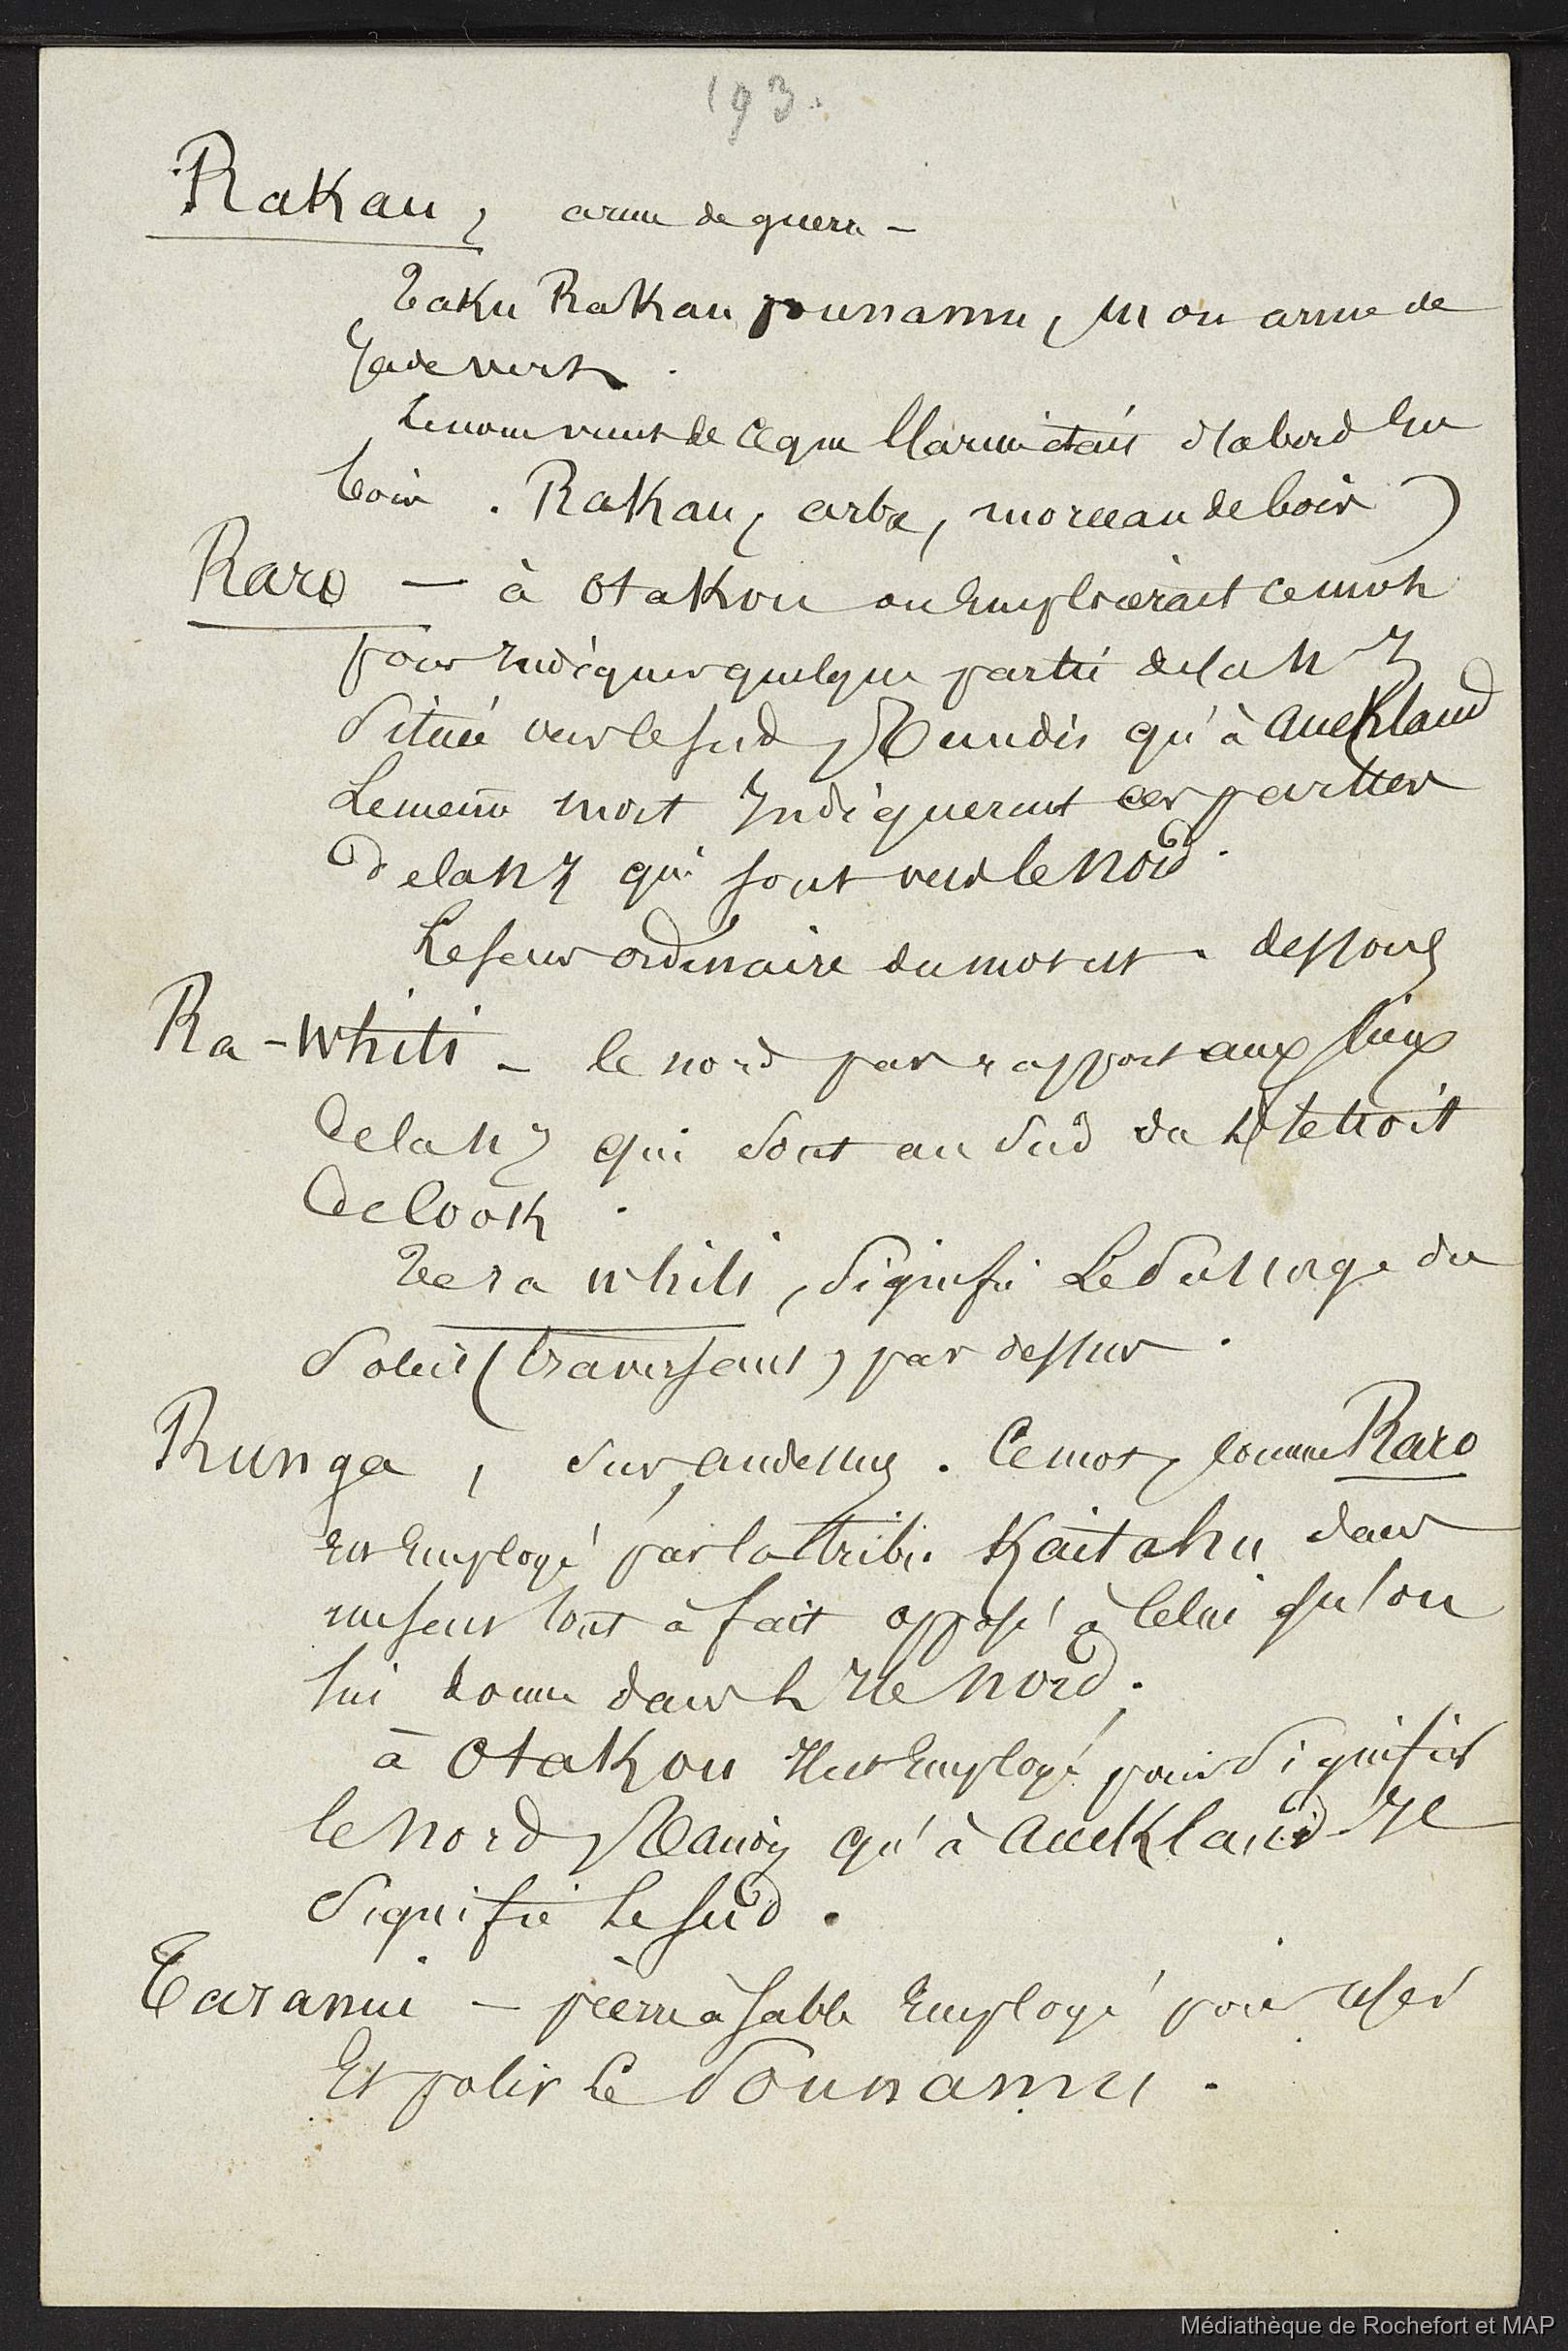 193.
Rakau, arme de guerre –
Taku Rakau pounamu, Mon arme de
Jade vert.
Le nom vient de ce que l'arme était d'abord En
bois. Rakau, arbre, morceau de bois)
Raro – à Otakou on Emploierait ce mot
pour Indiquer quelque partie de la N Z
Située vers le Sud Tandis qu'à Auckland
Le même mot Indiquerait ces parties
de la N Z qui sont vers le Nord.
Le sens ordinaire du mot est. dessous
Ra-Whiti – le nord par rapport aux lieux
de la N Z qui sont au Sud du Détroit
de Cook.
Te ra whiti, Signifie Le du
Soleil (traversant) par dessus.
Runga, sur, au dessus. Ce mot, comme Raro
est Employé par la tribu Kaitahu dans
un sens tout à fait opposé à Celui qu'on
lui donne dans l'Ile Nord.
à Otakou Il est Employé pour Signifier
le Nord Tandis qu'à Auckland Il
Signifie le Sud.
Taranui – pierre à sable Employé pour user
Et polir le Pounamu.
Médiathèque de Rochefort et MAP